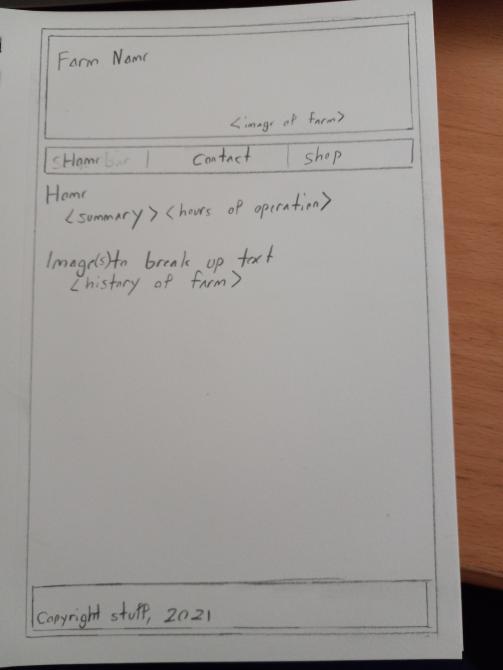 Farm Name
<image of farm>
Home | Contact | Shop
Home
<summary> <hours of operation>
Image(s) to break up text
<history of farm>
Copyright stuff, 2021